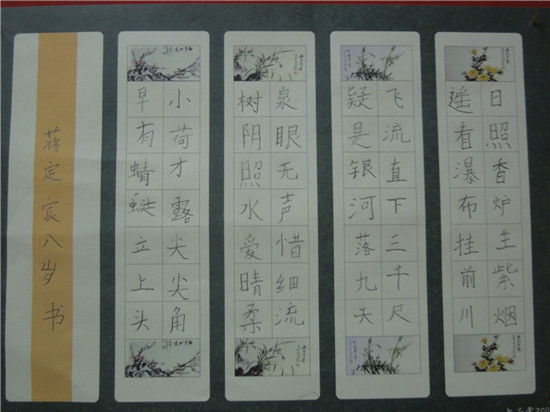 日照香炉生紫烟
遥看瀑布挂前川
飞流直下三千尺
疑是银河落九天
泉眼无声惜细流
树阴照水爱晴柔
小荷才露尖尖角
早有蜻蜓立上头
蒋定宸八岁书